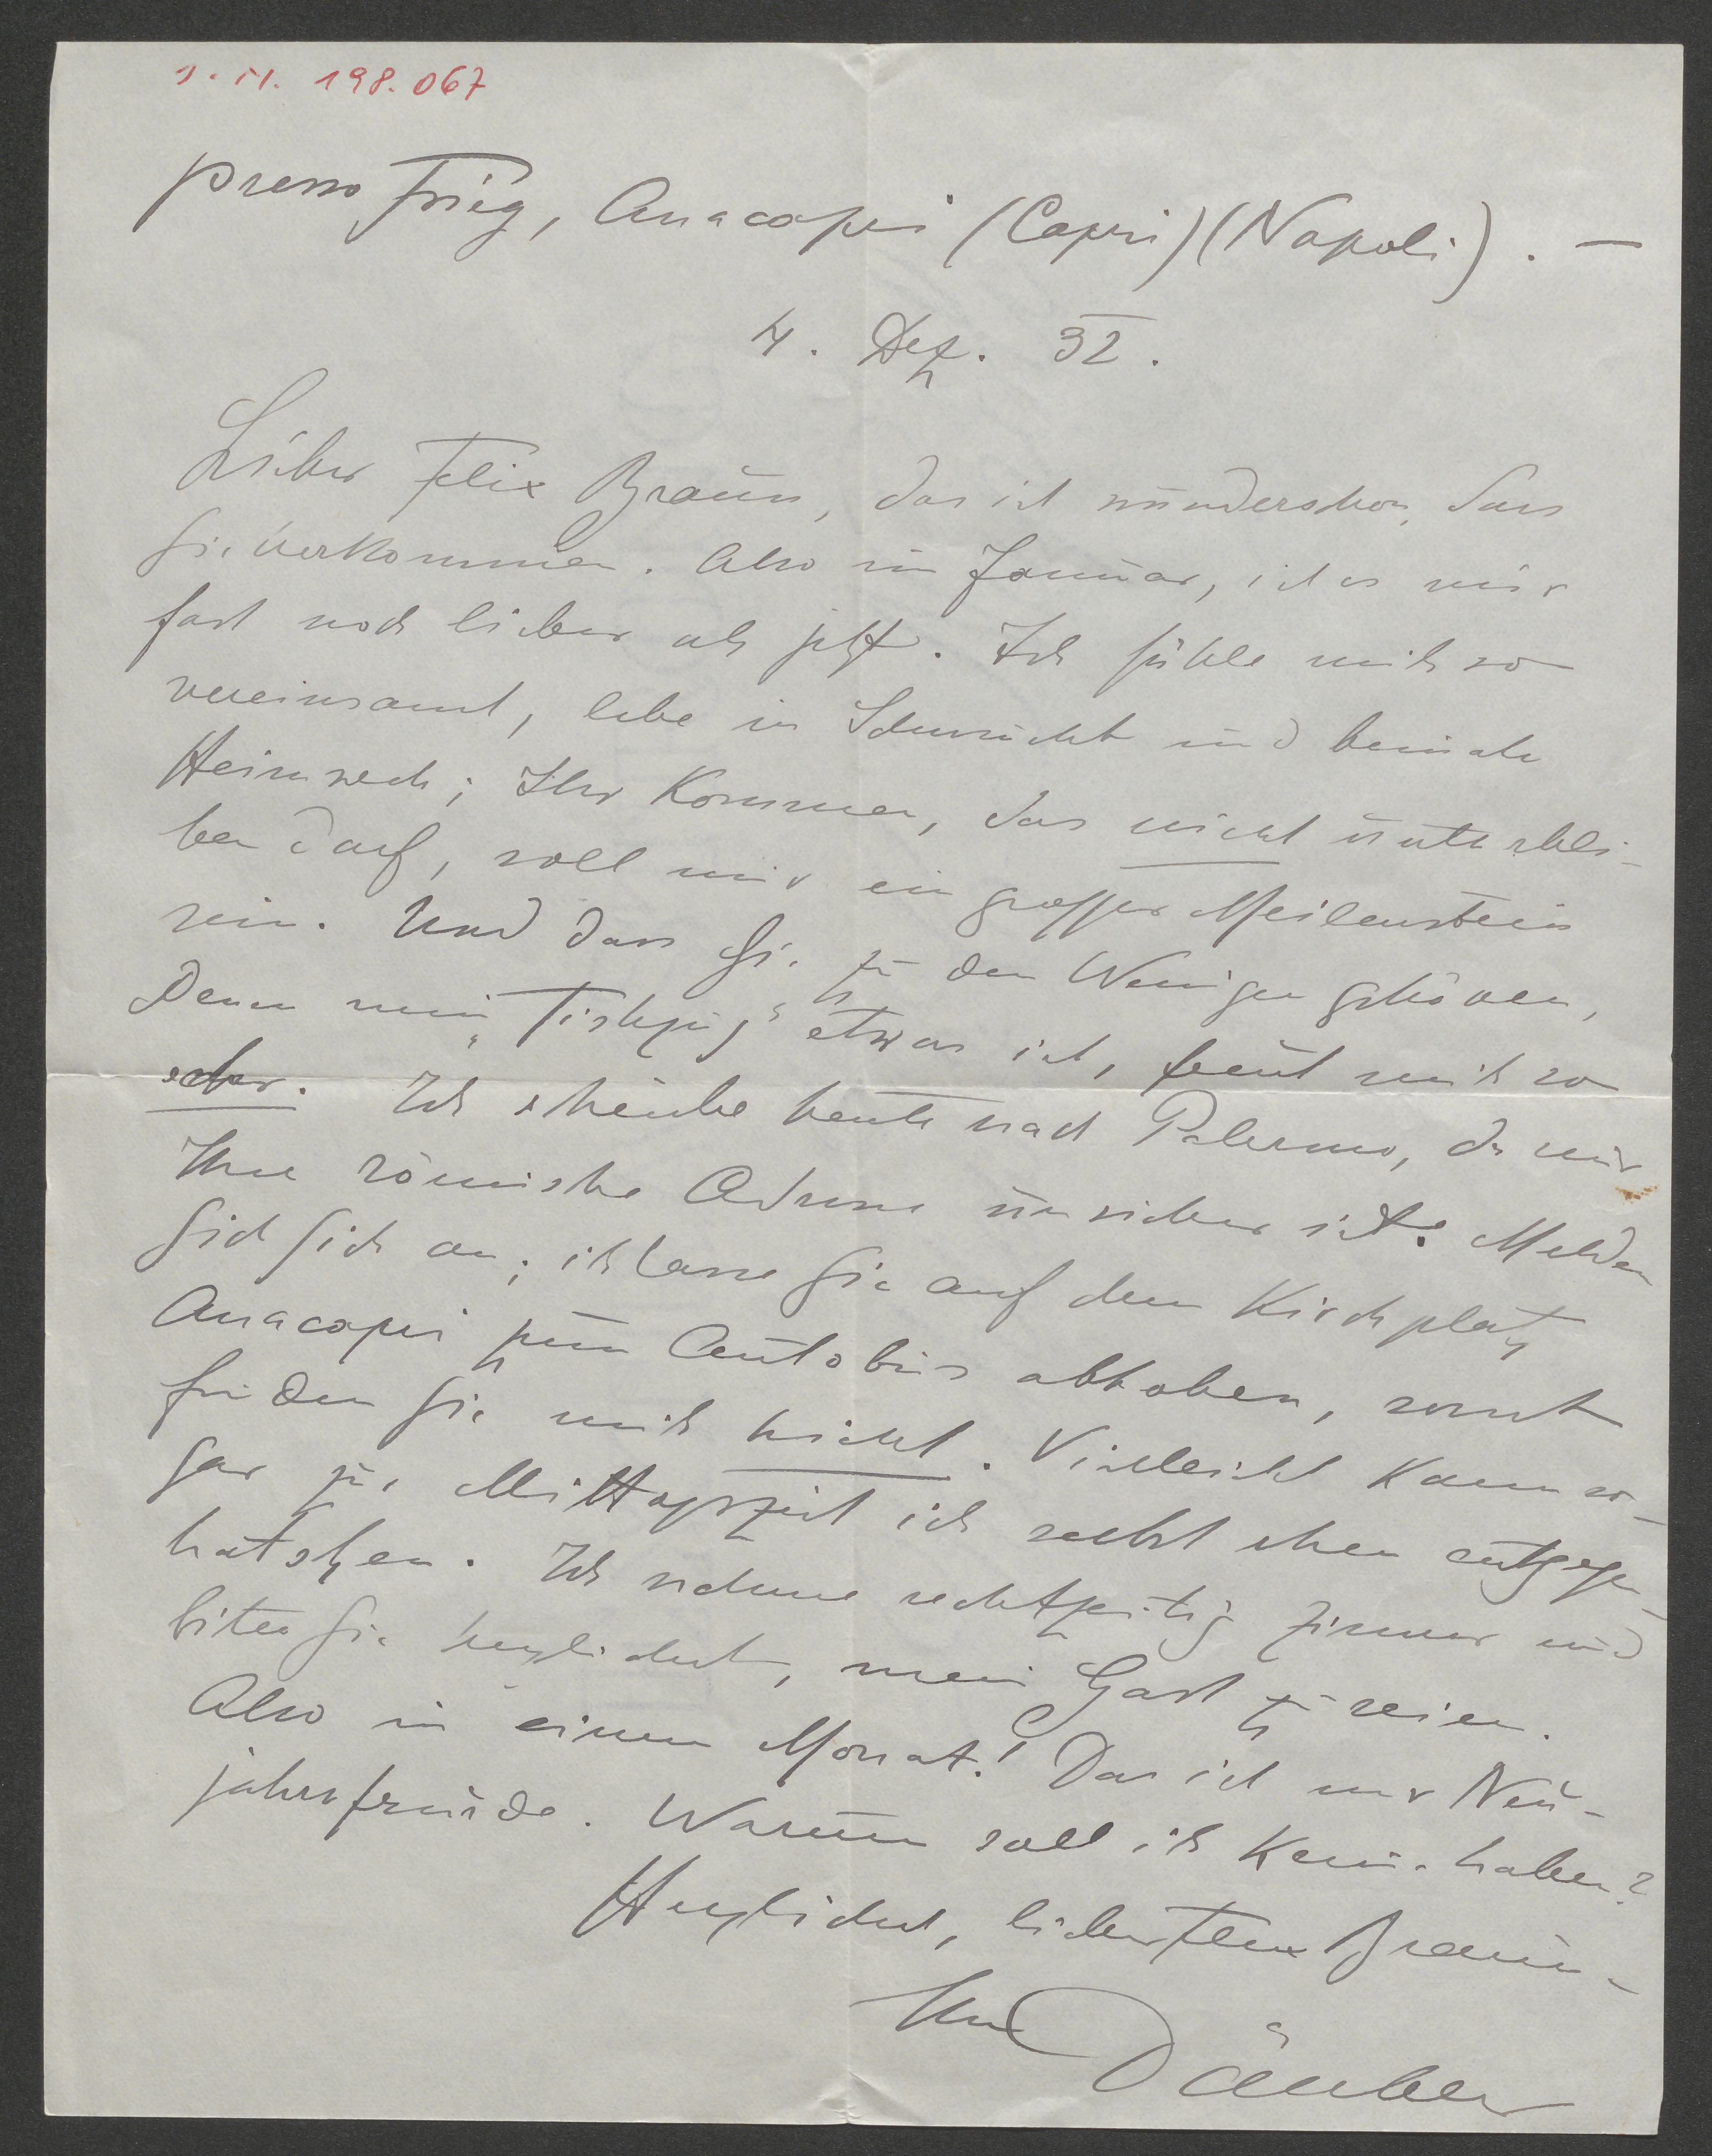 I.N. 198.067
presso Trieg, Anacapri (Capri) (Napoli). —
4. Dez. 32.
Lieber Felix Braun, das ist wunderschön, dass
Sie herkommen. Also im Januar, ist es mir
fast noch lieber als jetzt. Ich fühle mich so
vereinsamt, lebe in Sehnsucht und beinahe
Heimweh; Ihr Kommen, das nicht unterblei-
ben darf, soll mir ein grosser Meilenstein
sein. Und dass Sie zu den Wenigen gehören,
Denen mein "Tishzuj" etwas ist, freut mich so
sehr. Ich schreibe heute nach Palermo, da mir
Ihre römische Adresse unsicher ist. Melden
Sich Sich an; ich lasse Sie auf dem Kirchplatz
Anacapri zum Autobus abholen, sonst
finden Sie mich nicht. Vielleicht kann so-
gar zur Mittagszeit ich selbst Ihnen entgegen-
hatschen. Ich nehme rechtzeitig Zimmer und
bitte Sie herzlichst, mein Gast zu sein.
Also in einem Monat! Das ist mir Neu-
jahrsfreude. Warum soll ich keine haben?
Herzlichst, liebster Felix Braun -
Ihr Däubler